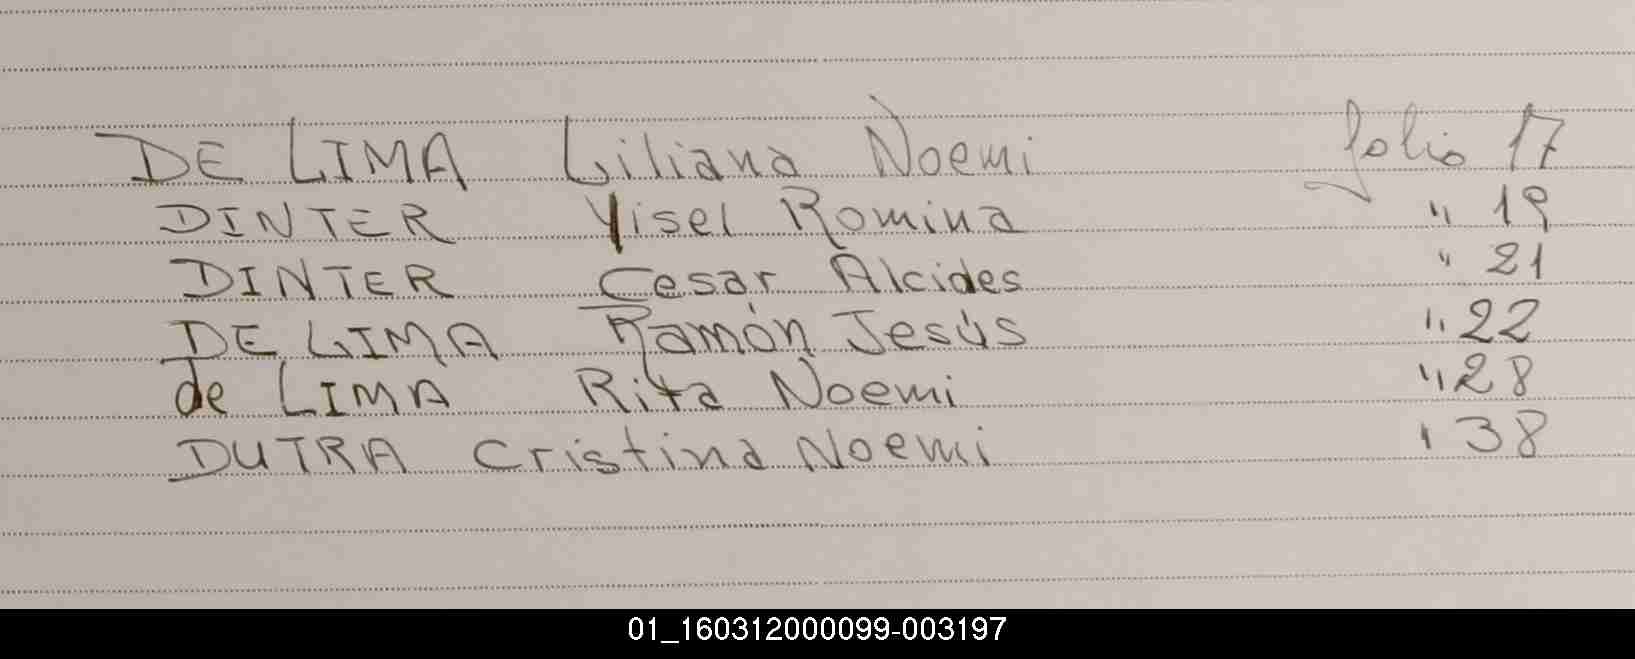 DE LIMA Liliana Noemi folio 17
DINTER Yisel Romina " 19
DINTER Cesar Alcides " 21
DE LIMA Ramón Jesús " 22
de LIMA Rita Noemi " 28
DUTRA Cristina Noemi " 38
01_160312000099-003197